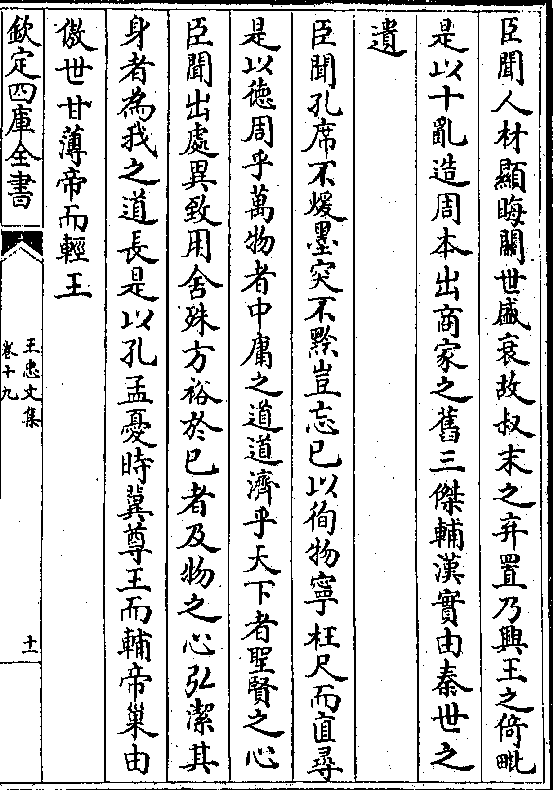 臣聞人材顯晦關世盛衰故叔末之弃置乃興王之倚毗
是以十亂造周本出商家之舊三傑輔漢實由秦世之
遺
臣聞孔席不煖墨突不黔豈忘已以徇物寧枉尺而直尋
是以徳周乎萬物者中庸之道道濟乎天下者聖賢之心
臣聞出處異致用舍殊方裕於已者及物之心弘潔其
身者為我之道長是以孔孟憂時冀尊王而輔帝巢由
傲世甘薄帝而輕王
欽定四庫全書
王忠文集
卷十九
十一